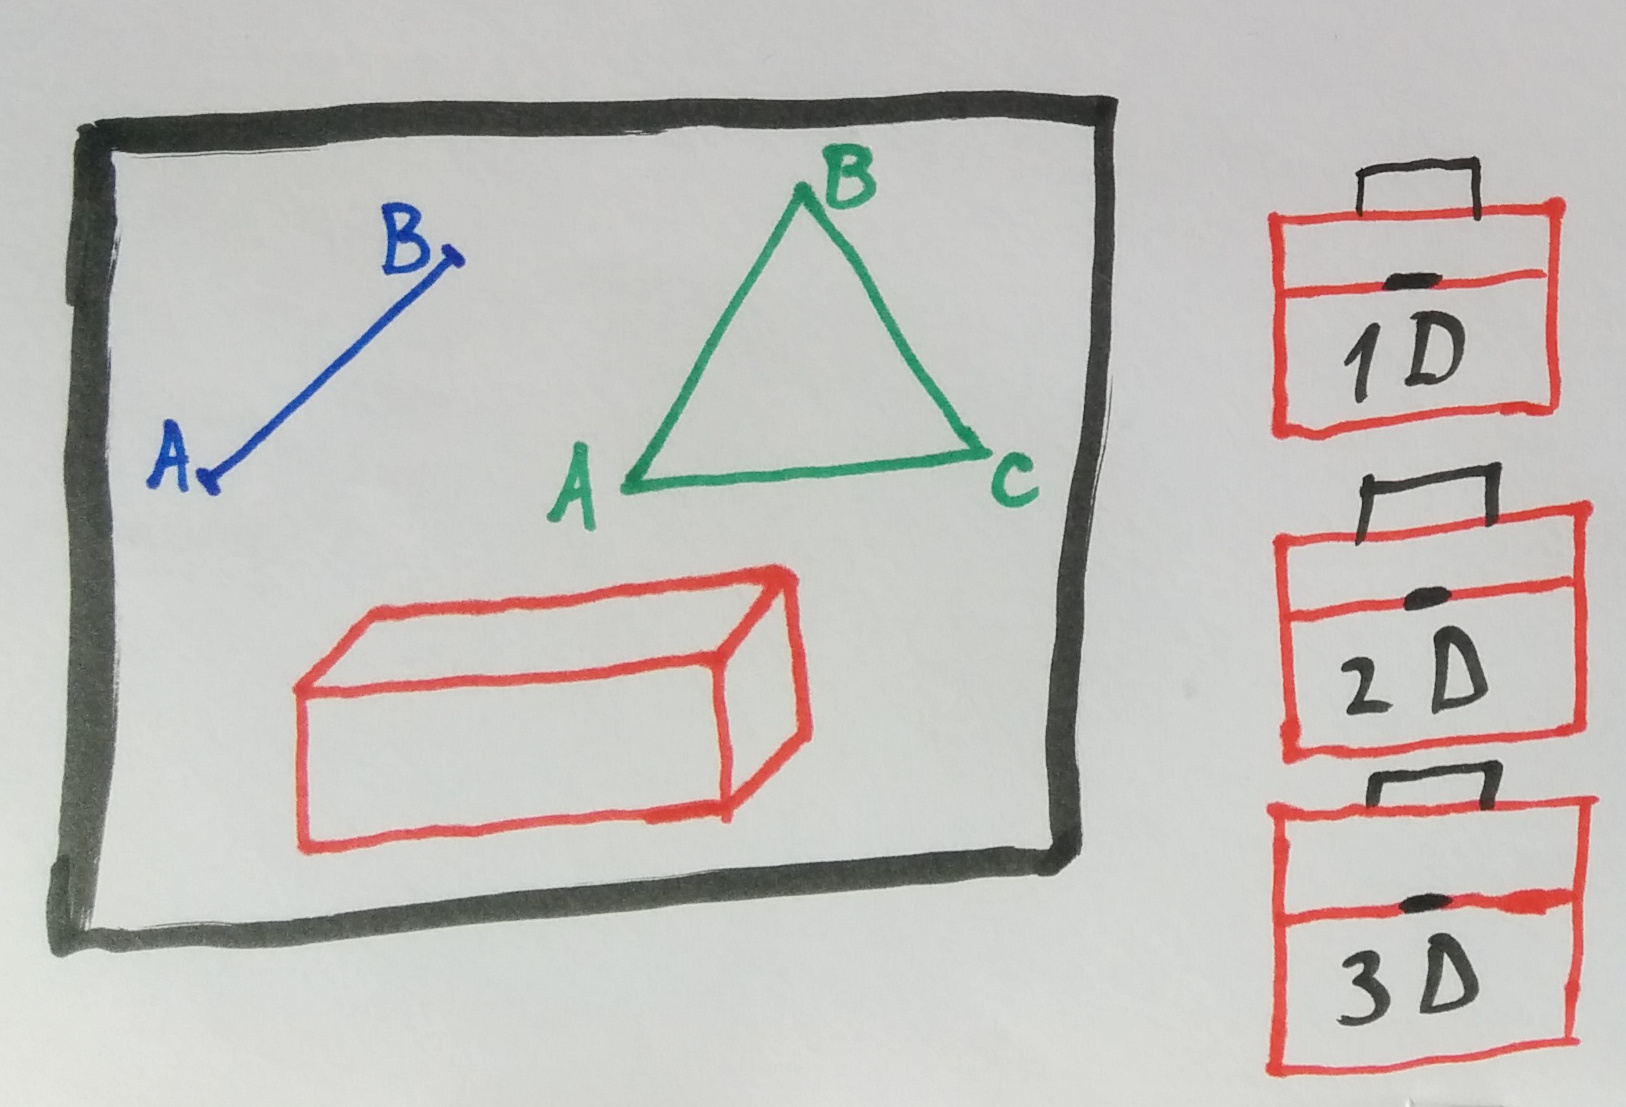 B
A
B
A
C
1D
2D
3D